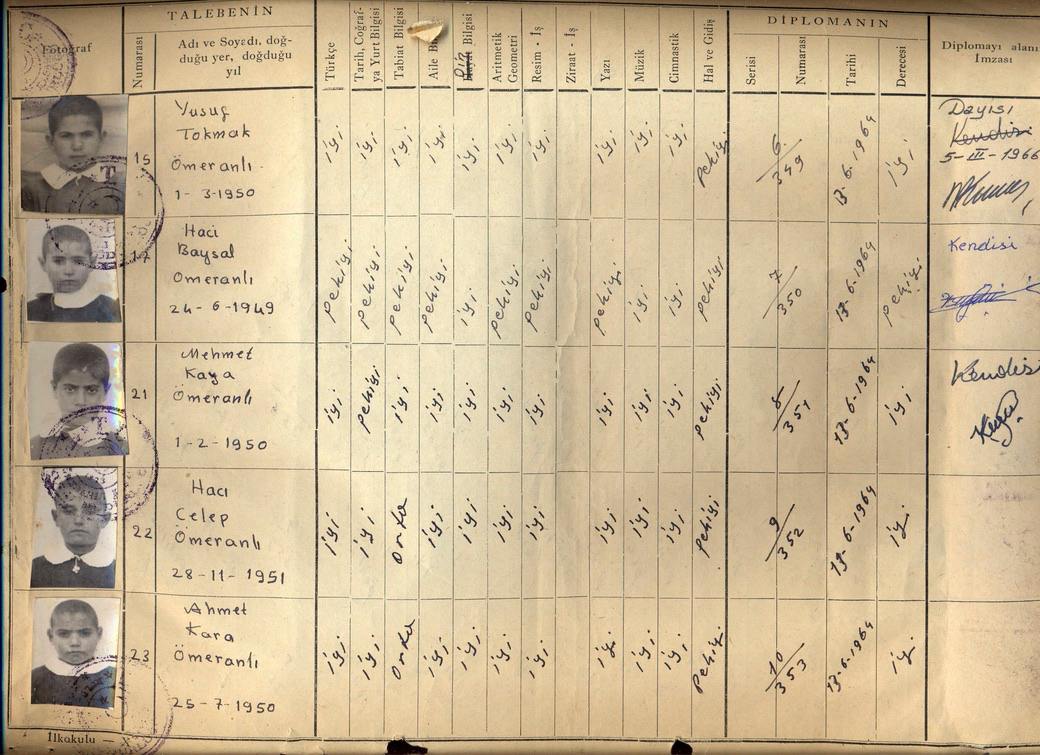 TALEBENİN
DİPLOMANIN
Fotoğraf
Numarası
Adı ve Soyadı, doğ-
duğu yer, doğduğu
yıl
Türkçe
Tarih, Coğraf-
ya Yurt Bilgisi
Tabiat Bilgisi
Aile
Din
Bilgisi
Aritmetik
Geometri
Resim - İş
Ziraat - İş
Yazı
Müzik
Cimnastik
Hal ve Gidiş
Serisi
Numarası
Tarihi
Derecesi
Diplomayı alanın
İmzası
15
Yusuf
Tokmak
Ömeranlı
1-3-1950
iyi iyi iyi iyi iyi iyi iyi iyi iyi iyi Pekiyi
6/349
13-6-1964
iyi
Dayısı
Kendisi
5-III-1966
17
Haci
Baysal
Omeranlı
24-6-1949
pekiyi pekiyi pekiyi pekiyi iyi pekiyi pekiyi pekiyi iyi iyi pekiyi
7/350
13-6-1964
pekiyi
Kendisi
21
Mehmet
Kaya
Ömeranlı
1-2-1950
iyi pekiyi iyi iyi iyi iyi iyi iyi iyi iyi pekiyi
8/351
13-6-1964
iyi
Kendisi
22
Hacı
Celep
Ömeranlı
28-11-1951
iyi iyi orta iyi iyi iyi iyi iyi iyi iyi pekiyi
9/352
13-6-1964
iyi
23
Ahmet
Kara
Ömeranlı
25-7-1950
iyi iyi orta iyi iyi iyi iyi iyi iyi iyi Pekiyi
10/353
13-6-1964
iyi
İlkokulu —